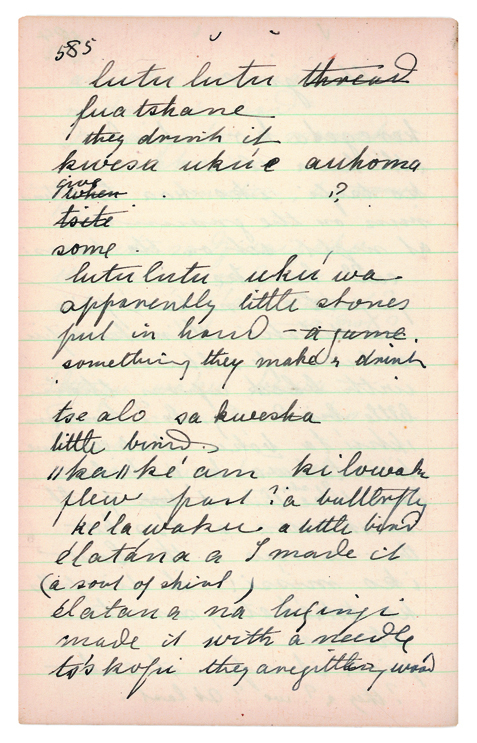 585
lutu lutu thread
fuatshane
they drink it
kwesa ukúe auhoma
give
when ?
tsite
some
lutu lutu ukú wa
apparently little stones
put in hand - a game
something they make & drink
tse alo sa kweska
little bird
"ka" ké am kilowak
flew past ? a butterfly
ké la waku a little bird
élatána a I made it
(a sort of shirt)
élatana na
made it with a needle
tós kopi they are getting wood